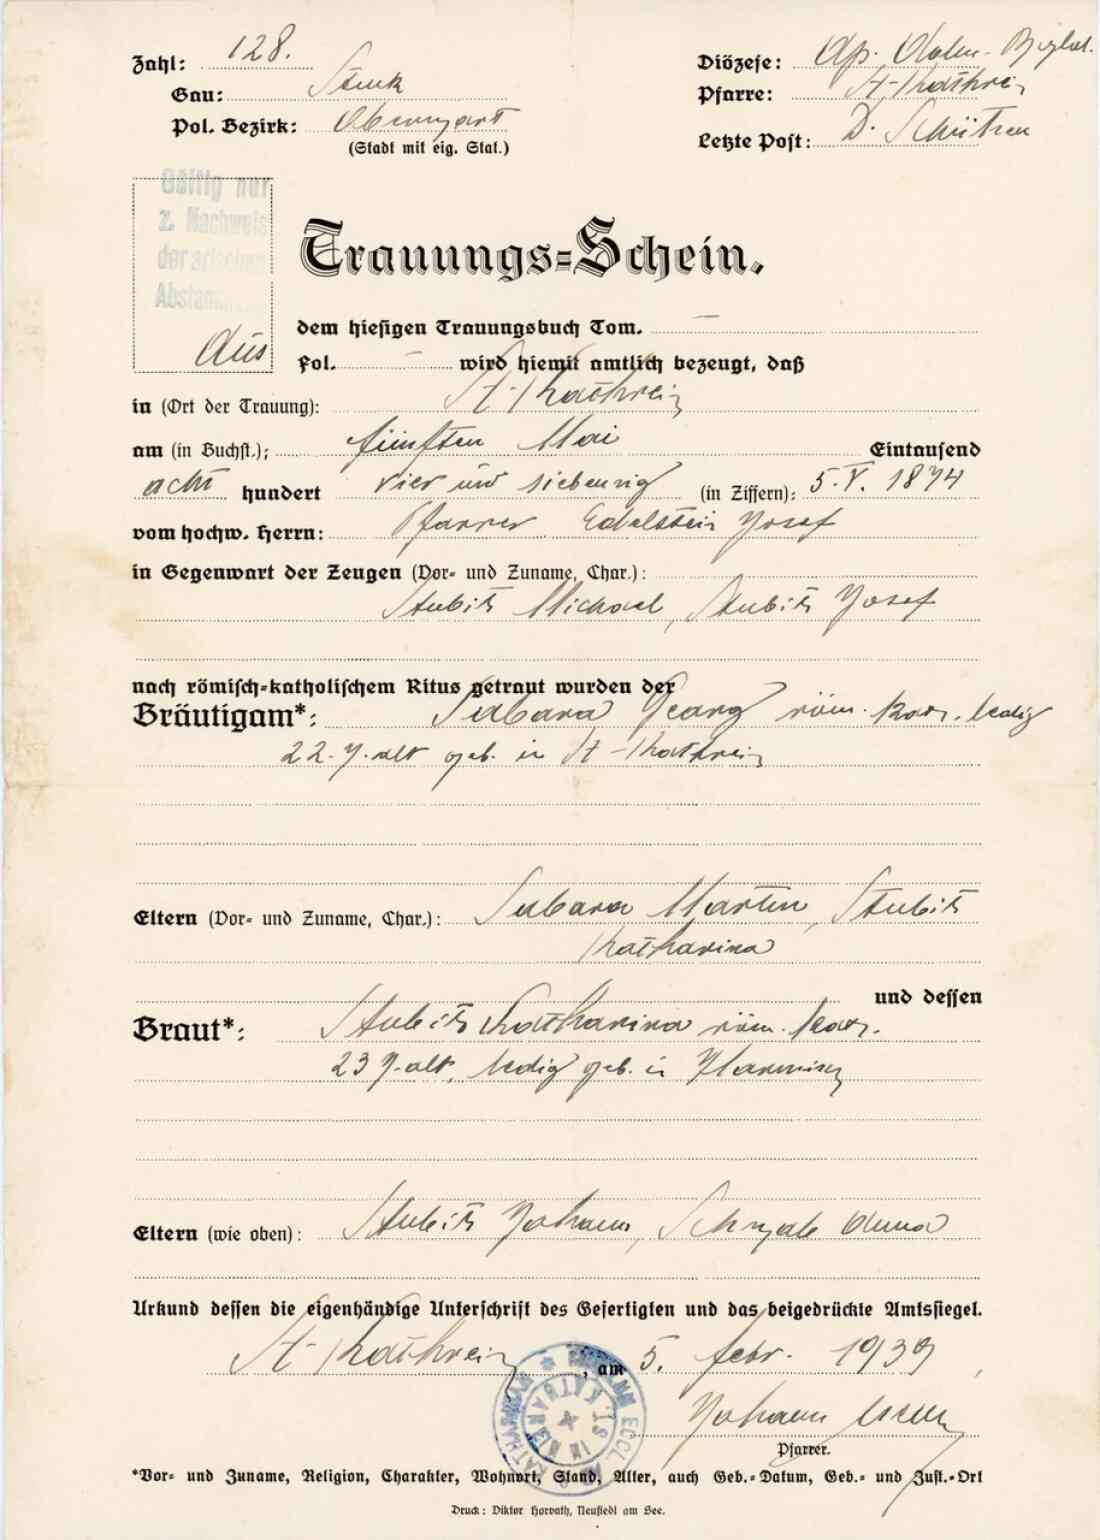 Zahl: 128.
Gau: Steirk
Pol. Bezirk: Oberwart
(Stadt mit eig. Stat.)
Diözese: Ap. Adm. Burglad.
Pfarre: St-Kathrein
Letzte Post: D. Schützen
Gültig nur
z. Nachweis
der arischen
Abstam
Trauungs-Schein.
Aus dem hiesigen Trauungsbuch Tom. —
Fol. — wird hiemit amtlich bezeugt, daß
in (Ort der Trauung): St-Kathrein
am (in Buchst.): fünften Mai Eintausend
acht hundert vier und siebenzig (in Ziffern): 5. V. 1874
vom hochw. Herrn: Pfarrer Edelstein Josef
in Gegenwart der Zeugen (Vor- und Zuname, Char.):
Stubits Michael, Stubits Josef
nach römisch-katholischem Ritus getraut wurden der
Bräutigam*: Subara Georg röm. kath. ledig
22. J. alt geb. in St-Kathrein
Eltern (Vor- und Zuname, Char.): Subara Martin, Stubits
Katharina
und dessen
Braut*: Stubits Katharina röm. kath.
23 J. alt, ledig geb. in Harmisch
Eltern (wie oben): Stubits Johann, Anna
Urkund dessen die eigenhändige Unterschrift des Gefertigten und das beigedrückte Amtssiegel.
St Kathrein, am 5. Febr. 1939
Johann
Pfarrer.
*Vor- und Zuname, Religion, Charakter, Wohnort, Stand, Alter, auch Geb.-Datum, Geb.- und Zust.-Ort
Druck: Viktor Horvath, Neusiedl am See.